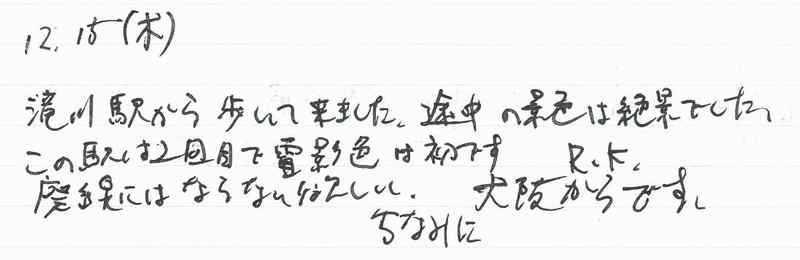 12.15(木)
滝川駅から歩いて来ました。途中の景色は絶景でした。
この駅は2回目で雪景色は初です R.K.
廃線にはならない欲しい。 大阪からです。
ちなみに